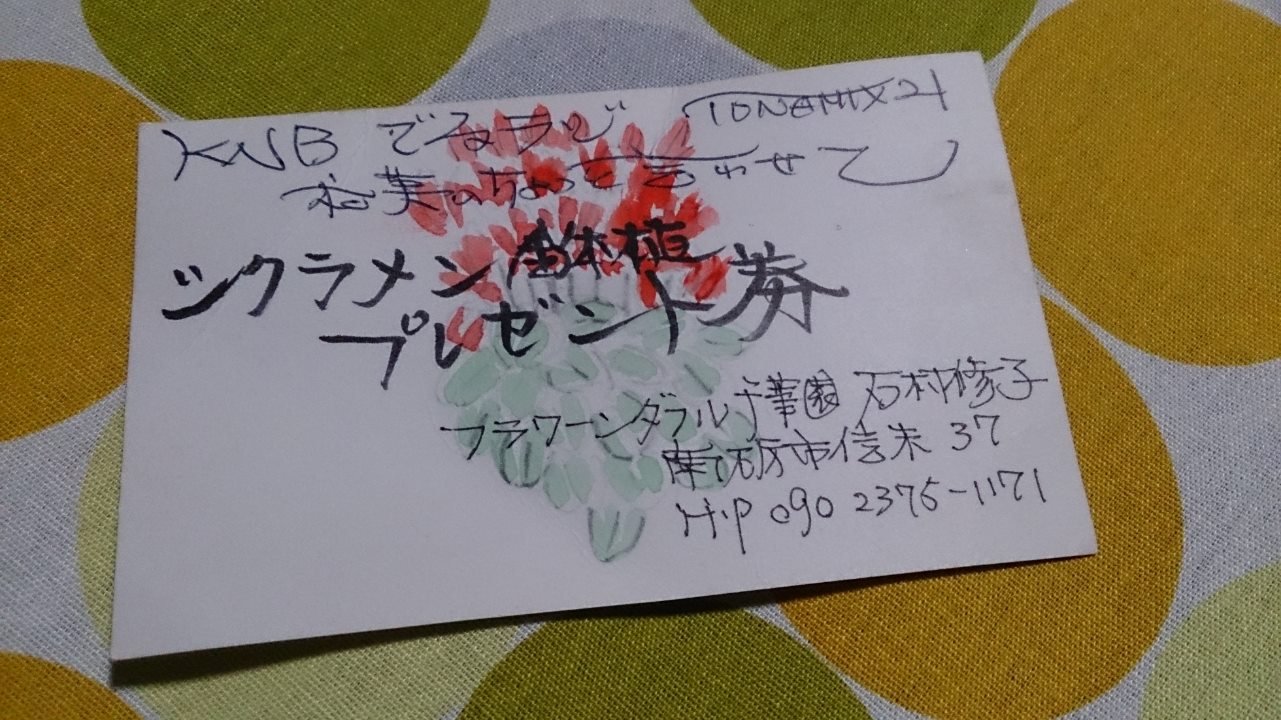 KNB でるラジ
のちょっと言わせて
シクラメン鉢植
プレゼント券
フラワーンダラル千華園 石村修子
南砺市信末 37
H・P 090 2375-1171